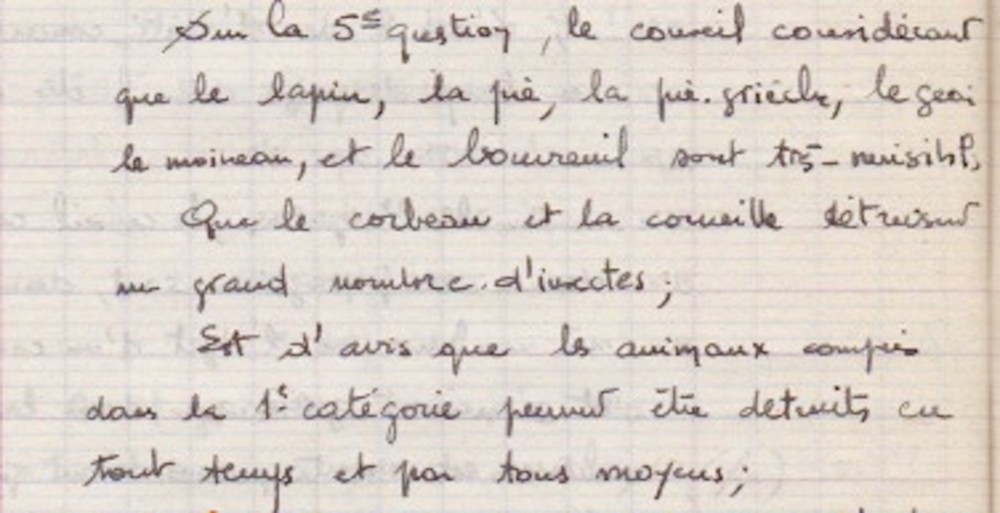 Sur la 5e question, le conseil considérant
que le lapin, la pie, la pie-grièche, le geai
le moineau, et le bouvreuil sont très-nuisibles,
Que le corbeau et la corneille détruisent
un grand nombre d'insectes;
Est d'avis que les animaux compris
dans la 1e catégorie peuvent être détruits en
tout temps et par tous moyens;